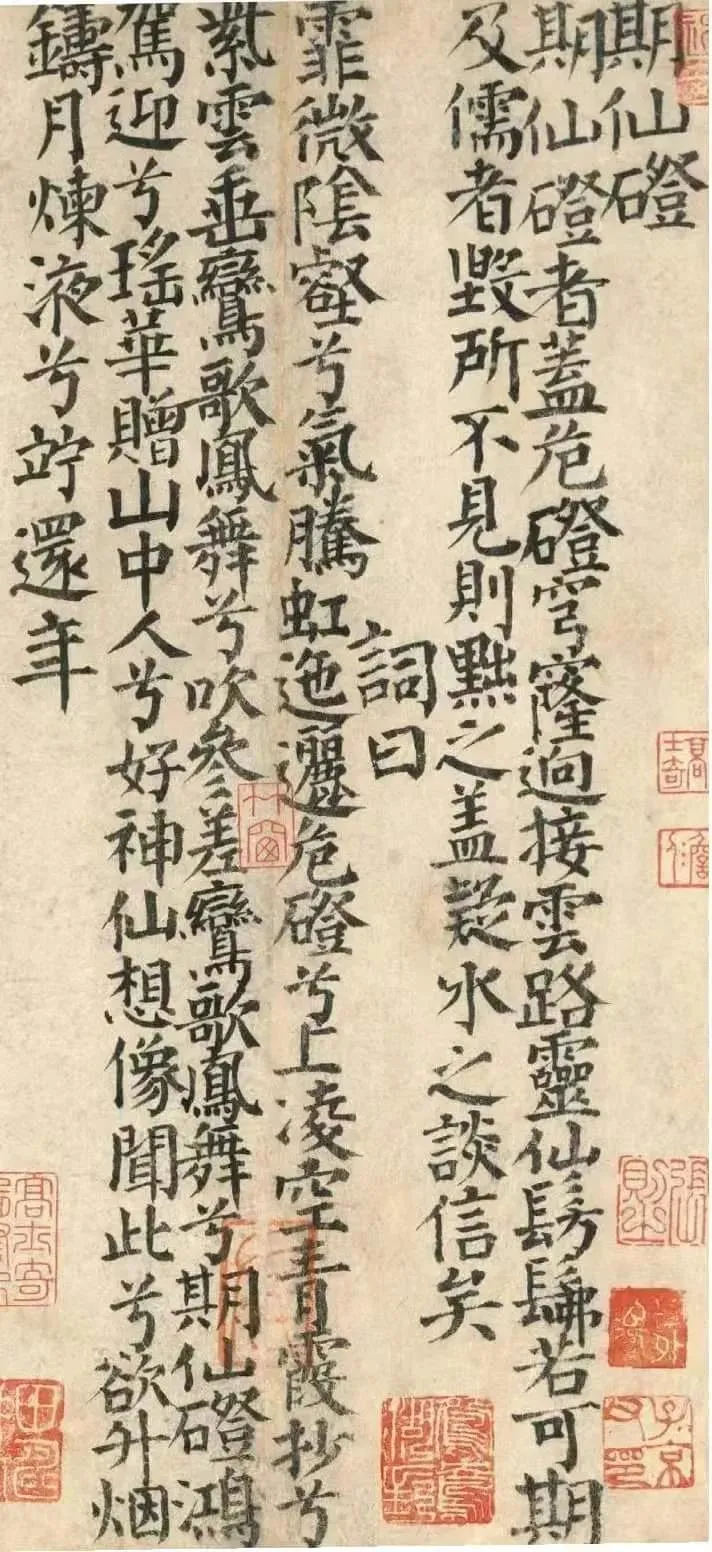 期仙磴
期仙磴者蓋危磴穹窿迥接雲路靈仙髣髴若可期
及儒者毀所不見則黜之蓋疑水之談信矣
詞曰
霏微陰壑兮氣騰虹迤邐危磴兮上凌空青霞抄兮
紫雲垂鸞歌鳳舞兮吹參差鸞歌鳳舞兮期仙磴鴻
駕迎兮瑤華贈山中人兮好神仙想像聞此兮欲升烟
鑄月煉液兮竚還年